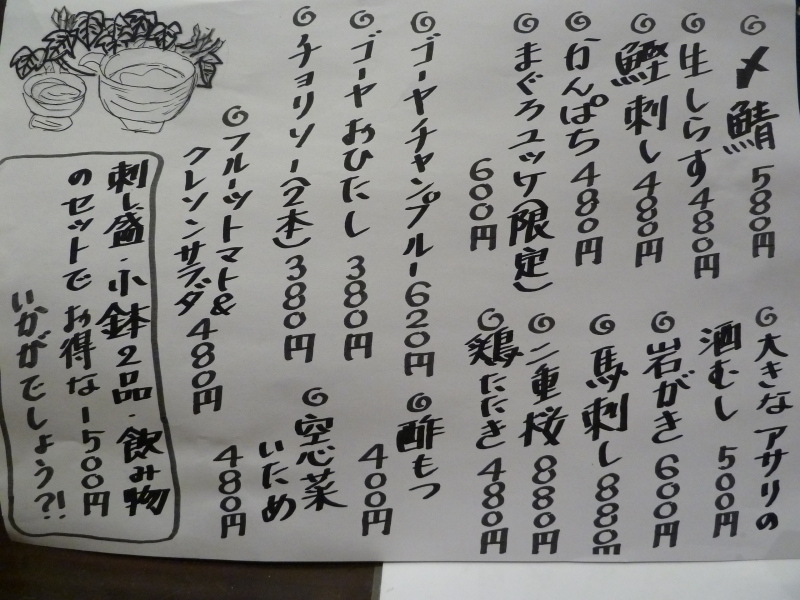 〆鯖 580円
生しらす 480円
鰹刺し 480円
かんぱち 480円
まぐろユッケ(限定)
600円
ゴーヤチャンプルー 620円
ゴーヤおひたし 380円
チョリソー(2本) 380円
フルーツトマト&
クレソンサラダ 480円
大きなアサリの
酒むし 500円
岩がき 600円
馬刺し 880円
二重桜 880円
鶏たたき 480円
酢もつ
400円
空心菜
いため
480円
刺し盛・小鉢2品・飲み物
のセットで お得な1500円
いかがでしょう?!